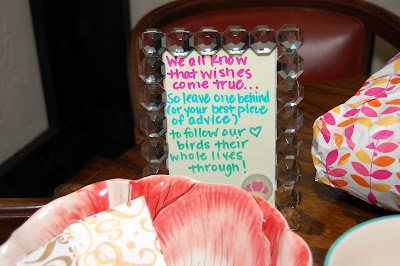 We all know
that wishes
come true...
So leave one behind
(or your best piece
of advice)
to follow our ♡
birds their
whole lives
through!